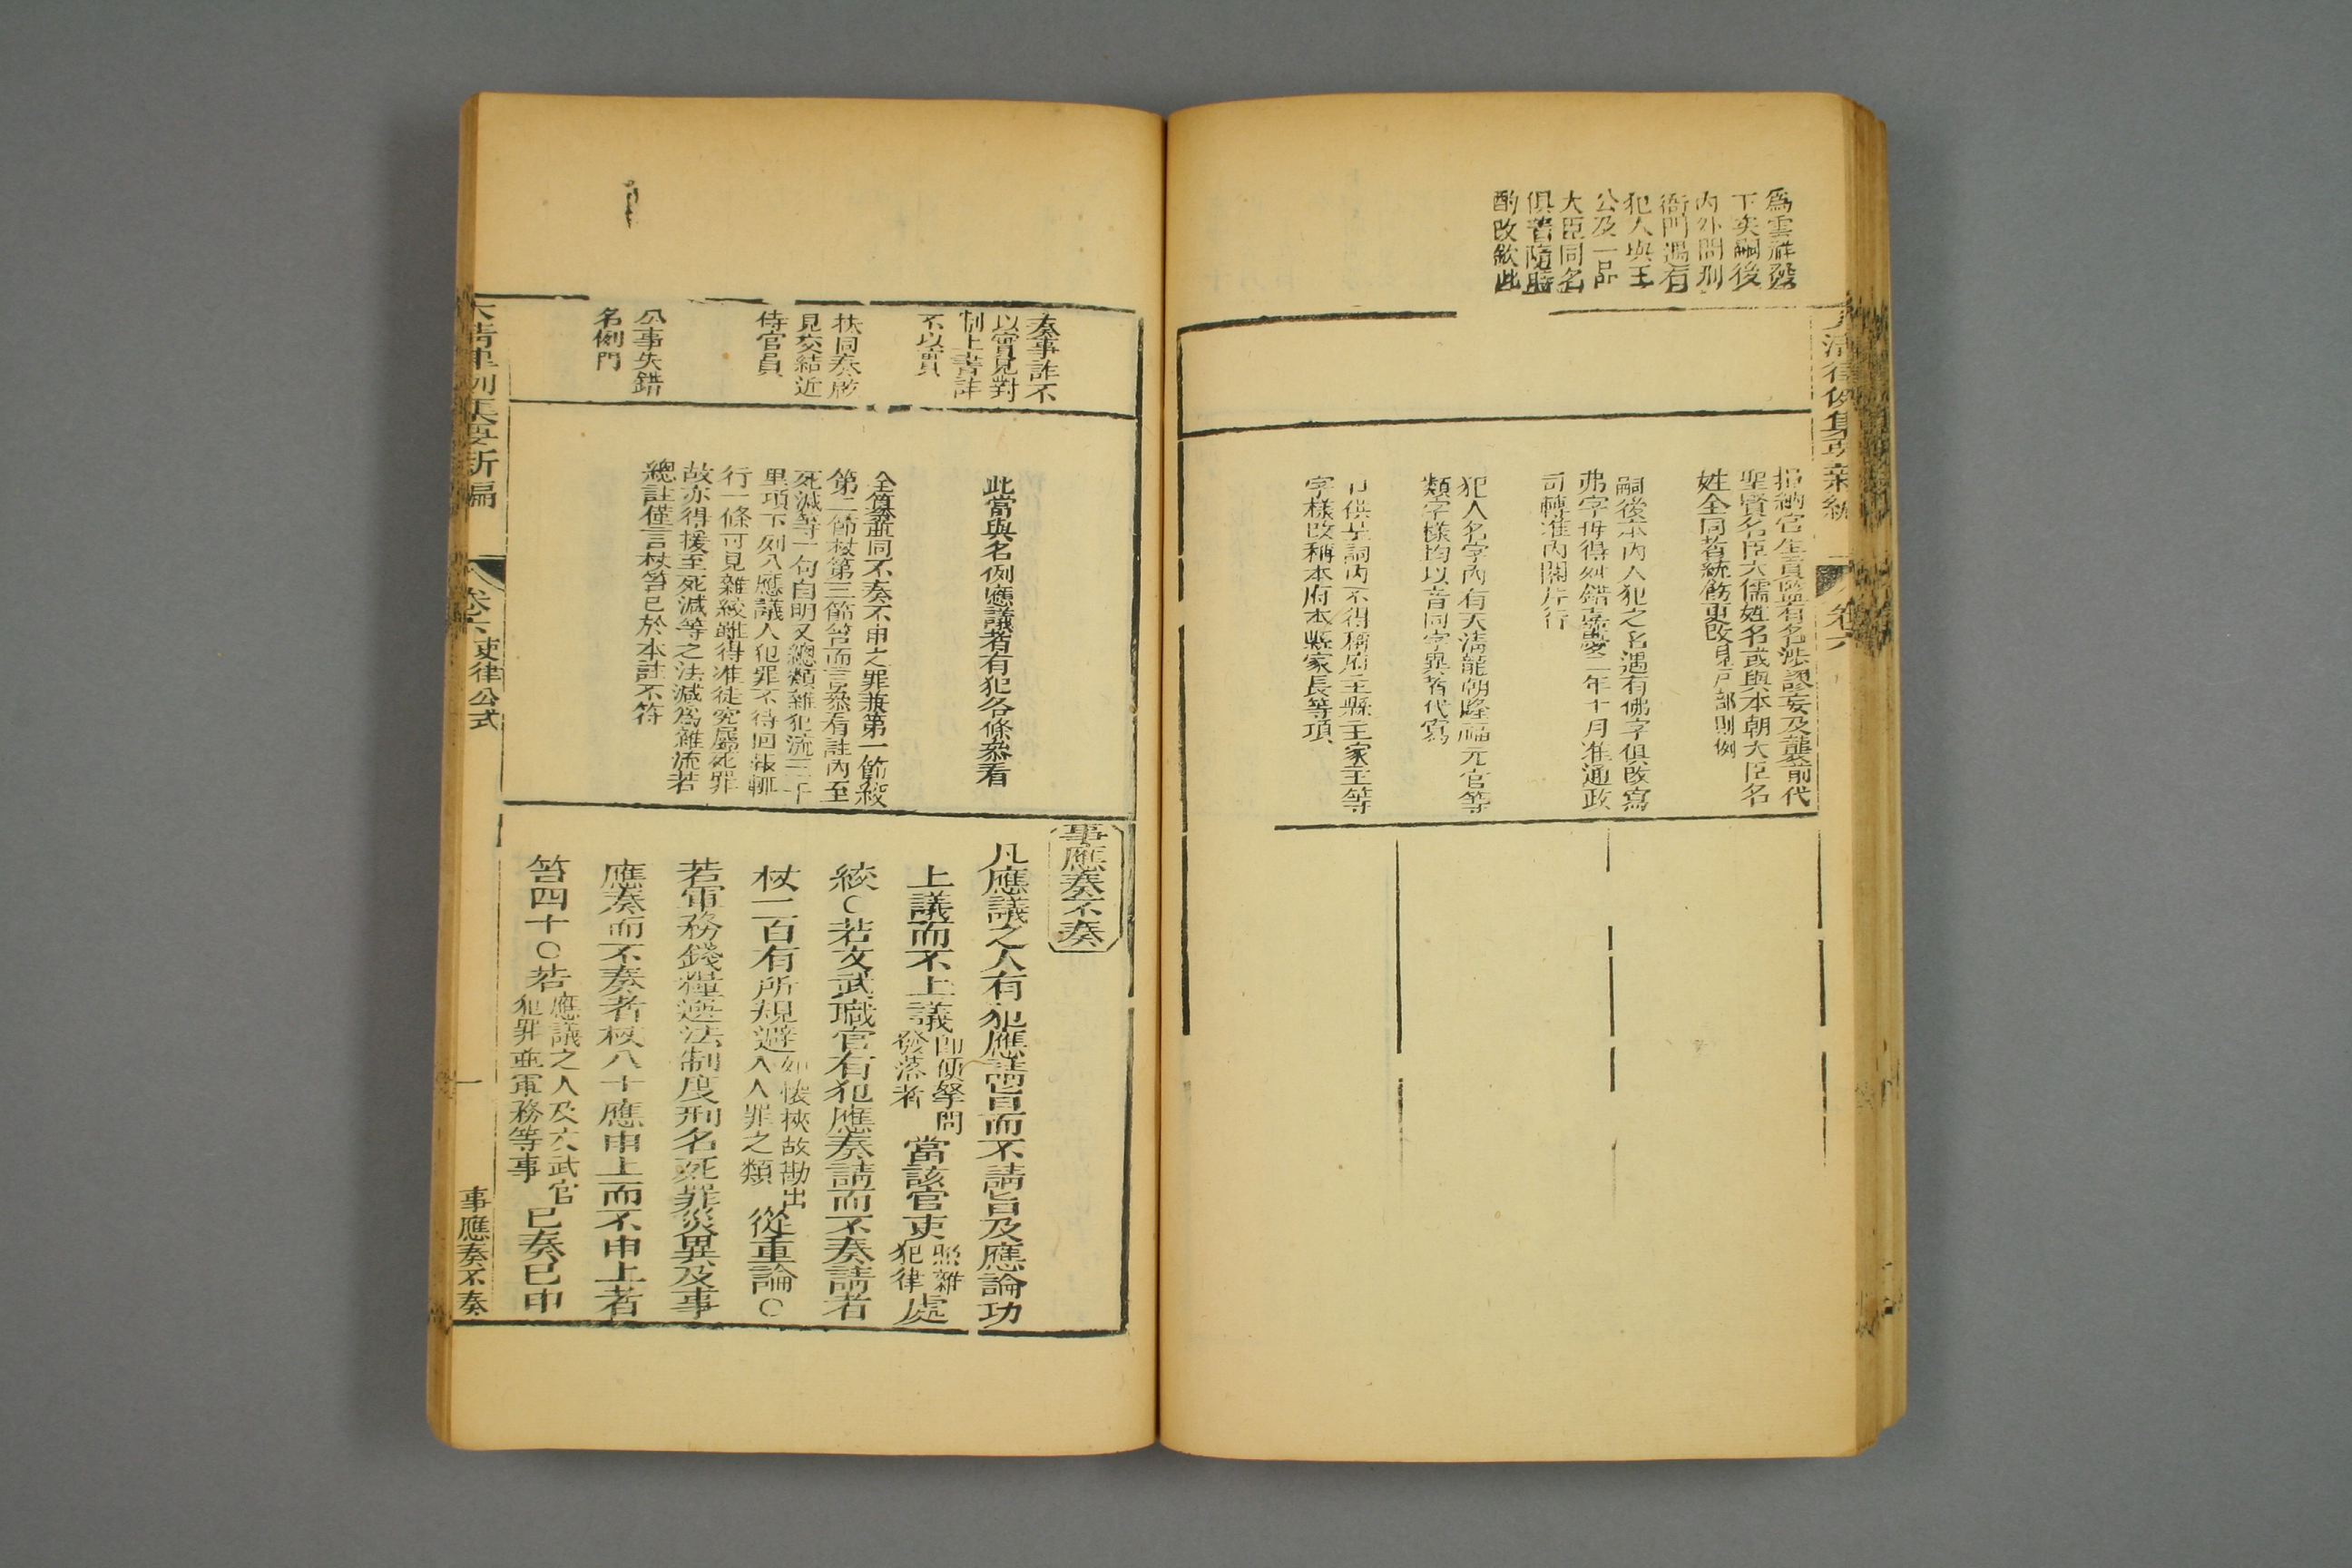 爲雲祥發
下矣嗣後
内外問刑
衙門遇有
犯人與王
公及一品
大臣同名
俱著隨時
酌改欽此
大清律例集要新編
卷六
捐納官生貢監有名涉誕妄及襲前代
聖賢名臣大儒姓名或與本朝大臣名
姓全同者統飭更改見戸部則例
嗣後本内人犯之名遇有佛字俱改寫
弗字毋得舛錯嘉慶二年十月准通政
司轉准内閣片行
犯人名字内有天淸龍朝隆福元官等
類字樣均以音同字異者代寫
口供呈詞内不得稱府主縣主家主等
字樣改稱本府本縣家長等項
奏事詐不
以實見對
制上書詐
不以實
扶同奏啟
見交結近
侍官員
公事失錯
名例門
此當與名例應議者有犯各條叅看
全篇並同不奏不申之罪兼第一節絞
第二節杖第三節笞而言叅看註内至
死減等一句自明又總類雜犯流三千
里項下列八應議人犯罪不待回報輒
行一條可見雜絞雖得准徒究屬死罪
故亦得援至死減等之法減爲雜流若
總註僅言杖笞已於本註不符
事應奏不奏
凡應議之人有犯應請旨而不請旨及應論功
上議而不上議卽便拏問發落者當該官吏照雜犯律處
絞○若文武職官有犯應奏請而不奏請者
杖一百有所規避如懷挾故勘出入人罪之類從重論○
若軍務錢糧選法制度刑名死罪災異及事
應奏而不奏者杖八十應申上而不申上者
笞四十○若應議之人及文武官犯罪並軍務等事已奏已申
大清律例集要新編
卷六 吏律公式
一
事應奏不奏